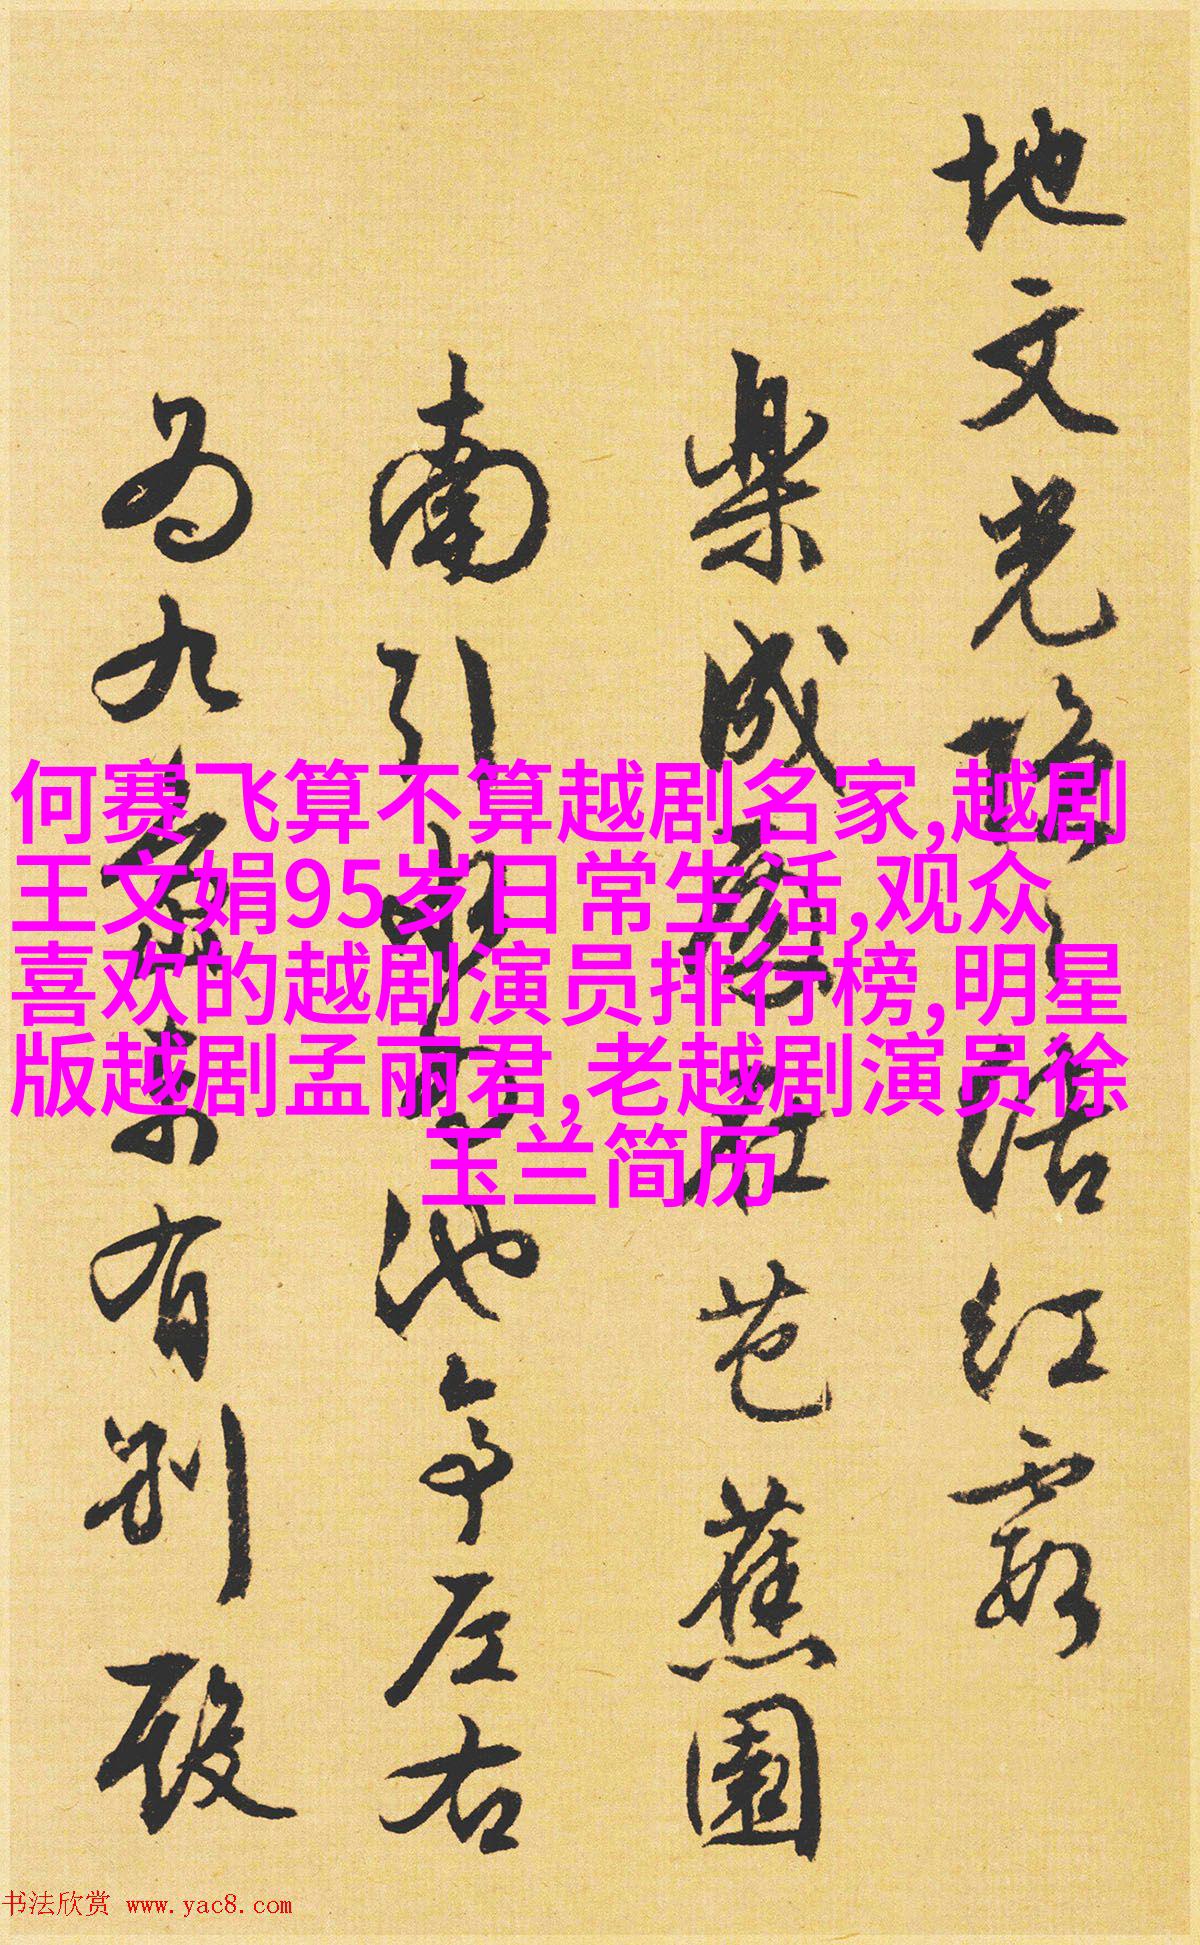 地文光红霞
樂成殿在芭蕉園
南引池亭左右
為九東有别殿
何赛飞算不算越剧名家,越剧
王文娟95岁日常生活,观众
喜欢的越剧演员排行榜,明星
版越剧孟丽君,老越剧演员徐
玉兰简历
书法欣赏 www.yac8.com